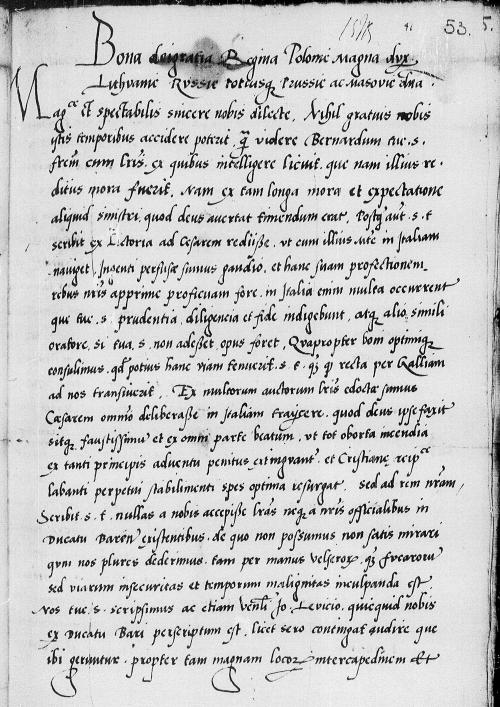 53. 5.
Bona dei gratia Regina Polonie Magna dux
Lithvanie Rvssie totiusq Prussie ac Masovie dna.
Mag.ce et spectabilis sincere nobis dilecte, Nihil gratius nobis
istis temporibus accidere poterit, q videre Bernardum tue. s.
frem cum lris. ex quibus intelligere licuit. que nam illius re-
ditus mora fuerit. Nam ex tam longa mora et expectatione
aliquid sinistri, quod deus avertat timendum erat. Postq aut. s. t
scribit ex Victoria ad Cesarem rediisse. vt cum illius Mte in Italiam
naviget, Ingenti perfusae sumus gaudio, et hanc suam profectionem
rebus nris apprime proficuam fore. in Italia enim multa occurrent
que tue. s. prudentia, diligencia et fide indigebunt, atq alio simili
oratore, si tua. s. non adesset, opus foret, Quapropter bom optimuq
consulimus. qd potius hanc viam tenuerit. s. t. qz q recta per Galliam
ad nos transiverit, Ex multorum auctorum lris edoctae sumus
Caesarem omnio deliberasse in Italiam traycere. quod deus ipse faxit
sitq. faustissimu et ex omni parte beatum. vt tot oborta incendia
ex tanti principis adventu penitus extinguant. et Cristiane reip.ce
labanti perpetui stabilimenti spes optima resurgat. Sed ad rem nram,
Scribit. s. t. nullas a nobis accepisse lras neq a nris officialibus in
Ducatu Baren existentibus. de quo non possumus non satis mirari
qum nos plures dederimus. tam per manus Velserox. qz fucaroru
sed viarum insecuritas et temporum malignitas inculpanda est.
Nos tue. s. scripsimus ac etiam Venli Jo. Levicio. quicquid nobis
ex Ducatu Bari perscriptum est. licet sero contingat audire que
ibi geruntur. propter tam magnam locorz intercapedinem Et